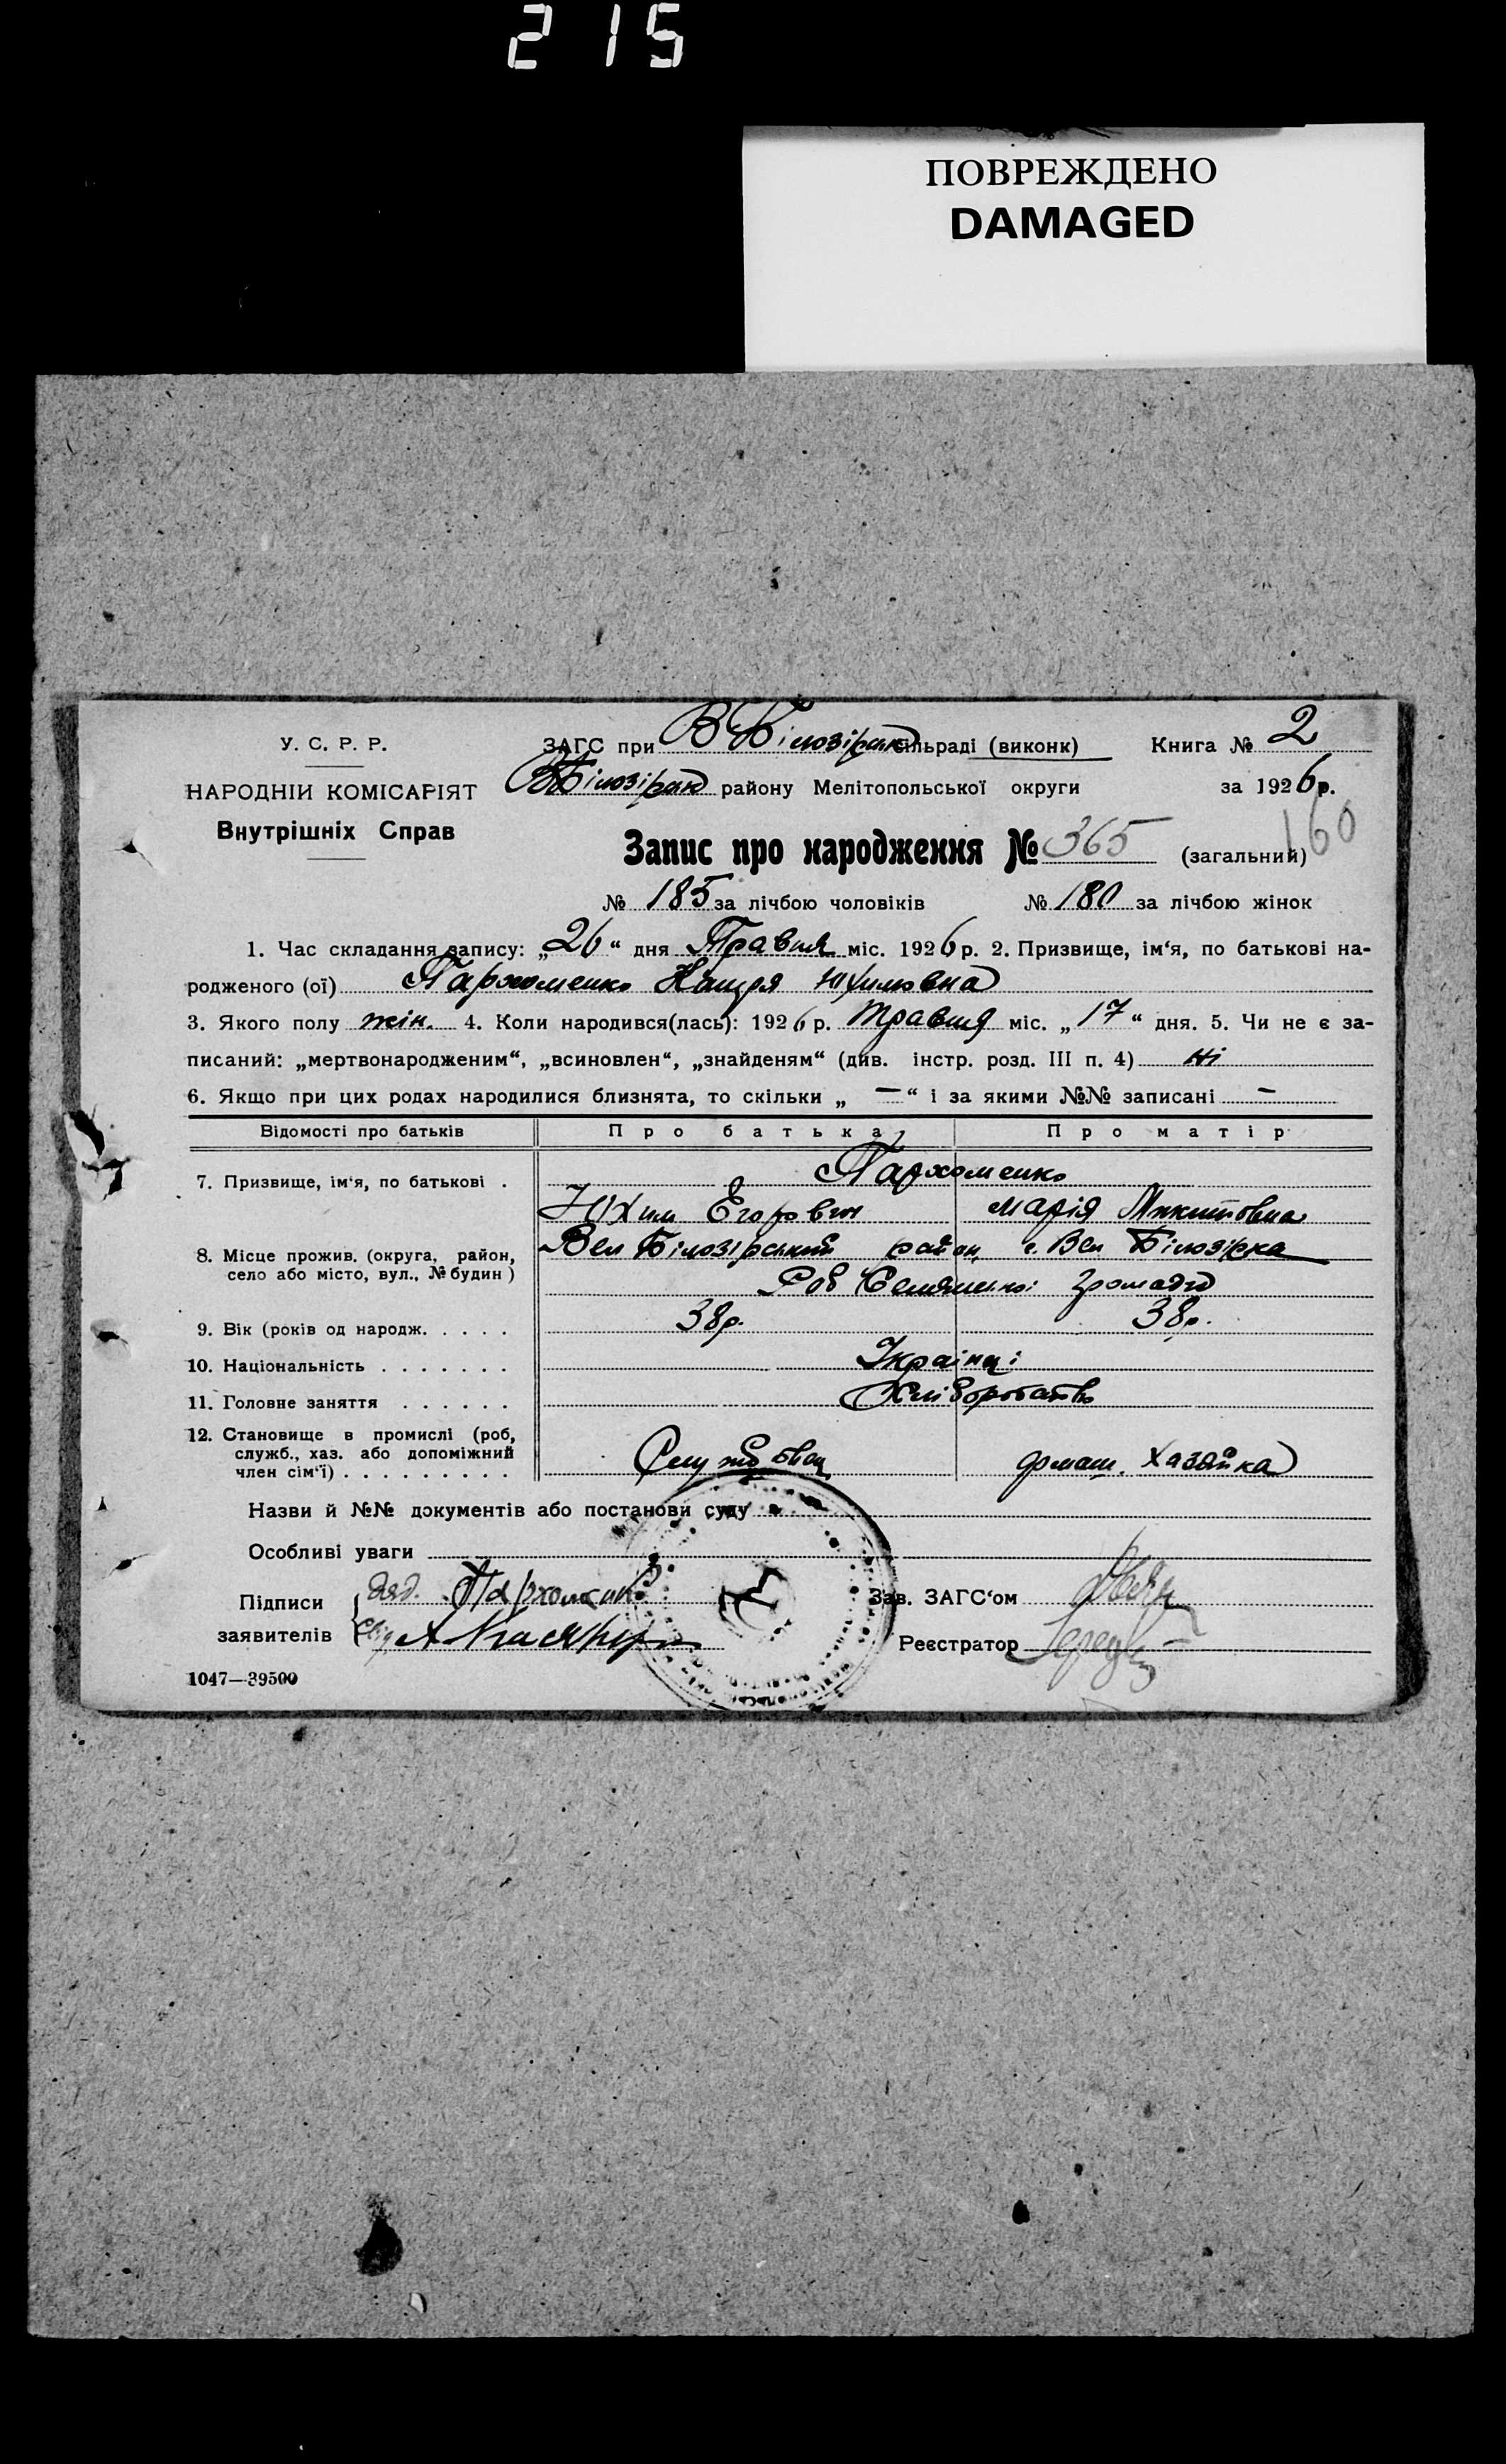 215
ПОВРЕЖДЕНО
DAMAGED
У. С. Р. Р.
НАРОДНІЙ КОМІСАРІЯТ
Внутрішніх Справ
ЗАГС при В Білозірськ сільраді (виконк) Книга № 2
В Білозірськ району Мелітопольської округи за 1926 р.
160
Запис про народження № 365 (загальний)
№ 185 за лічбою чоловіків № 180 за лічбою жінок
1. Час складання запису: „26“ дня Травня міс. 1926 р. 2. Призвище, ім‘я, по батькові на-
родженого (ої) Пархоменко Юхимовна
3. Якого полу жін. 4. Коли народився(лась): 1926 р. Травня міс. „17“ дня. 5. Чи не є за-
писаний: „мертвонародженим“, „всиновлен“, „знайденям“ (див. інстр. розд. III п. 4) Ні
6. Якщо при цих родах народилися близнята, то скільки „ — “ і за якими №№ записані —
Відомості про батьків Про батька Про матір
7. Призвище, ім‘я, по батькові . Пархоменко
Юхим Егорович Марія Микитовна
8. Місце прожив. (округа, район, Вел Білозірський район с. Вел Білозірка
село або місто, вул., № будин) Громади
9. Вік (років од народж. . . . . 38р. 38р.
10. Національність . . . . . . . Українці
11. Головне заняття . . . . . . Хліборобство
12. Становище в промислі (роб,
служб., хаз. або допоміжний
член сім‘ї) . . . . . . . . . Службовец домаш. хазяйка
Назви й №№ документів або постанови суду
Особливі уваги
Підписи Пархоменко Зав. ЗАГС‘ом
заявителів Реєстратор
1047—39500